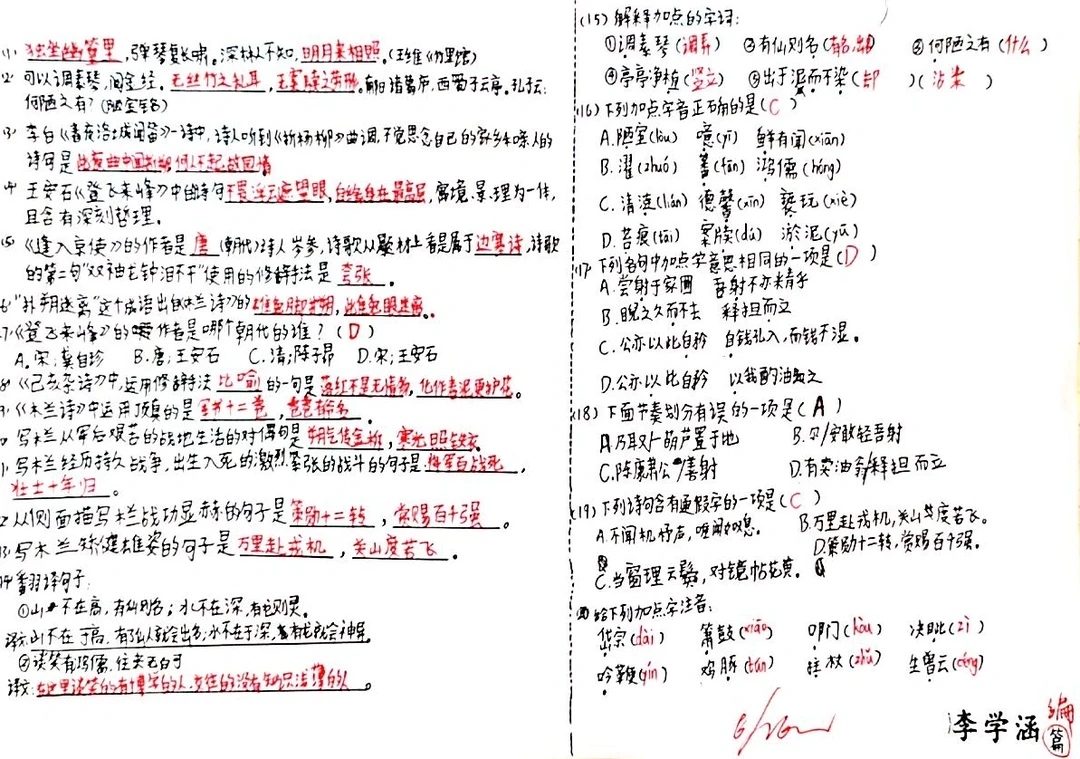 (1) 独坐幽篁里,弹琴复长啸。深林人不知,明月来相照。(王维《竹里馆》)
(2) 可以调素琴,阅金经。无丝竹之乱耳,无案牍之劳形。南阳诸葛庐,西蜀子云亭。孔子云:
何陋之有?(陋室铭)
(3) 李白《春夜洛城闻笛》一诗中,诗人听到《折杨柳》曲调,不觉思念自己的家乡和亲人的
诗句是此夜曲中闻折柳 何人不起故园情
(4) 王安石《登飞来峰》中的诗句不畏浮云遮望眼,自缘身在最高层,寓境、景、理为一体,
且含有深刻哲理。
(5) 《逢入京使》的作者是唐(朝代)诗人岑参,诗歌从题材上看是属于边塞诗,诗歌
的第二句"双袖龙钟泪不干"使用的修辞手法是夸张。
6 "扑朔迷离"这个成语出自《木兰诗》的雄兔脚扑朔,雌兔眼迷离。
7 《登飞来峰》的作者是哪个朝代的谁?(D)
A.宋;龚自珍 B.唐;王安石 C.清;陈子昂 D.宋;王安石
8 《己亥杂诗》中,运用修辞手法比喻的一句是落红不是无情物,化作春泥更护花。
9 《木兰诗》中运用顶真的是军书十二卷,卷卷有爷名。
写木兰从军后艰苦的战地生活的对偶句是朔气传金柝,寒光照铁衣
写木兰经历持久战争,出生入死的激烈紧张的战斗的句子是:将军百战死,
壮士十年归。
2 从侧面描写木兰战功显赫的句子是策勋十二转,赏赐百千强。
3 写木兰矫健雄姿的句子是万里赴戎机,关山度若飞。
14 翻译句子:
①山不在高,有仙则名;水不在深,有龙则灵。
译文:山不在于高,有了仙人就会出名;水不在于深,有龙就会神异
②谈笑有鸿儒,往来无白丁
译文:在这里谈笑的有博学的人,交往的没有知识浅薄的人。
(15) 解释加点的字词:
①调素琴(调弄) ②有仙则名(有名,出名) ③何陋之有(什么)
④亭亭净植(竖立) ⑤出于泥而不染(却)(沾染)
(16) 下列加点字音正确的是(C)
A.陋室(lòu) 噫(yī) 鲜有闻(xiān)
B.濯(zhuó) 蕃(fān) 鸿儒(hóng)
C.清涟(lián) 德馨(xīn) 亵玩(xiè)
D.苔痕(tāi) 案牍(dú) 淤泥(yū)
(17) 下列各句中加点字意思相同的一项是(D)
A.尝射于家圃 吾射不亦精乎
B.睨之久而不去 释担而立
C.公亦以此自矜 自钱孔入,而钱不湿。
D.公亦以此自矜 以我酌油知之
(18) 下面节奏划分有误的一项是(A)
A.乃取/一葫芦置于地 B.尔/安敢轻吾射
C.陈康肃公/善射 D.有卖油翁/释担而立
(19) 下列诗句含有通假字的一项是(C)
A.不闻机杼声,唯闻女叹息。 B.万里赴戎机,关山度若飞。
C.当窗理云鬓,对镜帖花黄。 D.策勋十二转,赏赐百千强。
⑳ 给下列加点字注音:
岱宗(dài) 箫鼓(xiāo) 叩门(kòu) 决眦(zì)
吟鞭(yín) 鸡豚(tún) 拄杖(zhǔ) 生曾云(céng)
李学涵 编
篇